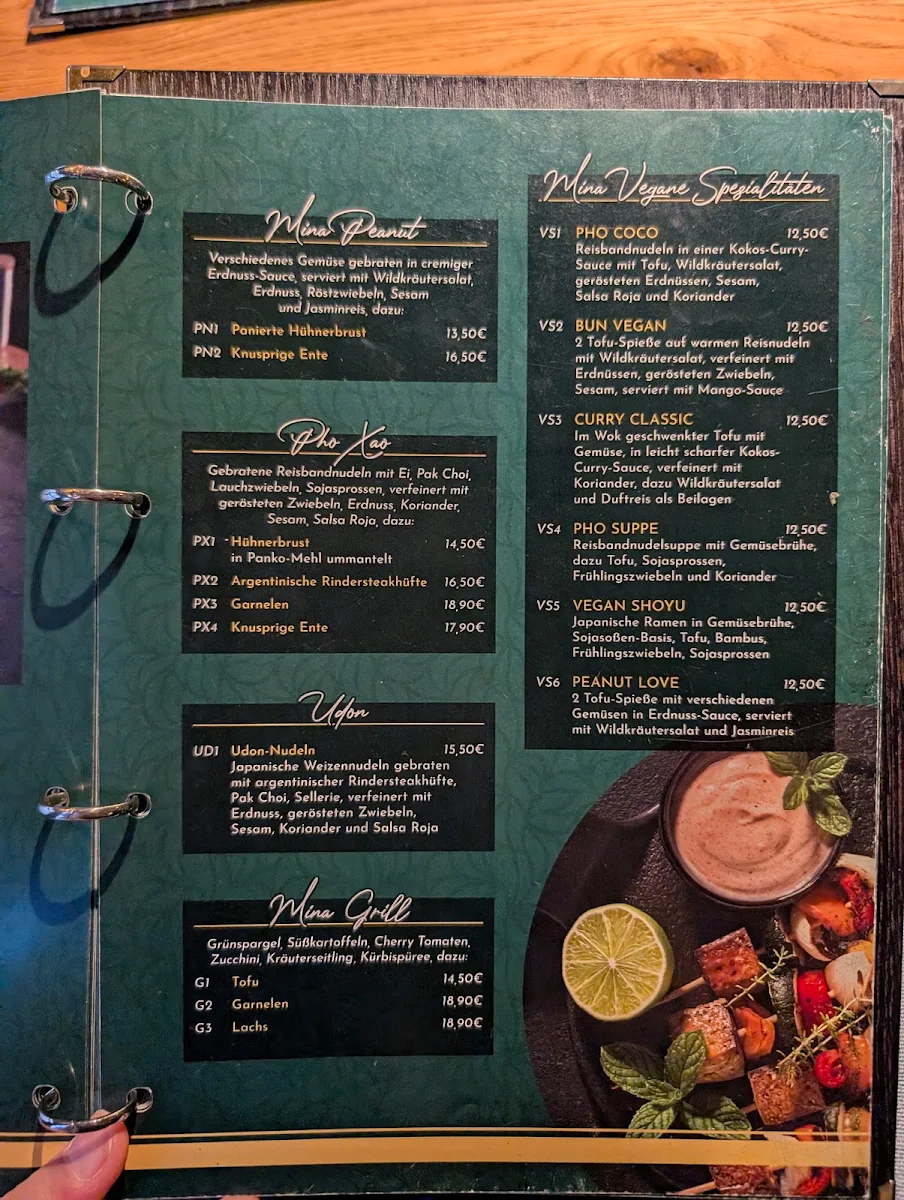 Mina Peanut
Verschiedenes Gemüse gebraten in cremiger
Erdnuss-Sauce, serviert mit Wildkräutersalat,
Erdnuss, Röstzwiebeln, Sesam
und Jasminreis, dazu:
PN1 Panierte Hühnerbrust 13,50€
PN2 Knusprige Ente 16,50€
Pho Xao
Gebratene Reisbandnudeln mit Ei, Pak Choi,
Lauchzwiebeln, Sojasprossen, verfeinert mit
gerösteten Zwiebeln, Erdnuss, Koriander,
Sesam, Salsa Roja, dazu:
PX1 Hühnerbrust 14,50€
in Panko-Mehl ummantelt
PX2 Argentinische Rindersteakhüfte 16,50€
PX3 Garnelen 18,90€
PX4 Knusprige Ente 17,90€
Udon
UD1 Udon-Nudeln 15,50€
Japanische Weizennudeln gebraten
mit argentinischer Rindersteakhüfte,
Pak Choi, Sellerie, verfeinert mit
Erdnuss, gerösteten Zwiebeln,
Sesam, Koriander und Salsa Roja
Mina Grill
Grünspargel, Süßkartoffeln, Cherry Tomaten,
Zucchini, Kräuterseitling, Kürbispüree, dazu:
G1 Tofu 14,50€
G2 Garnelen 18,90€
G3 Lachs 18,90€
Mina Vegane Spezialitäten
VS1 PHO COCO 12,50€
Reisbandnudeln in einer Kokos-Curry-
Sauce mit Tofu, Wildkräutersalat,
gerösteten Erdnüssen, Sesam,
Salsa Roja und Koriander
VS2 BUN VEGAN 12,50€
2 Tofu-Spieße auf warmen Reisnudeln
mit Wildkräutersalat, verfeinert mit
Erdnüssen, gerösteten Zwiebeln,
Sesam, serviert mit Mango-Sauce
VS3 CURRY CLASSIC 12,50€
Im Wok geschwenkter Tofu mit
Gemüse, in leicht scharfer Kokos-
Curry-Sauce, verfeinert mit
Koriander, dazu Wildkräutersalat
und Duftreis als Beilagen
VS4 PHO SUPPE 12,50€
Reisbandnudelsuppe mit Gemüsebrühe,
dazu Tofu, Sojasprossen,
Frühlingszwiebeln und Koriander
VS5 VEGAN SHOYU 12,50€
Japanische Ramen in Gemüsebrühe,
Sojasoßen-Basis, Tofu, Bambus,
Frühlingszwiebeln, Sojasprossen
VS6 PEANUT LOVE 12,50€
2 Tofu-Spieße mit verschiedenen
Gemüsen in Erdnuss-Sauce, serviert
mit Wildkräutersalat und Jasminreis